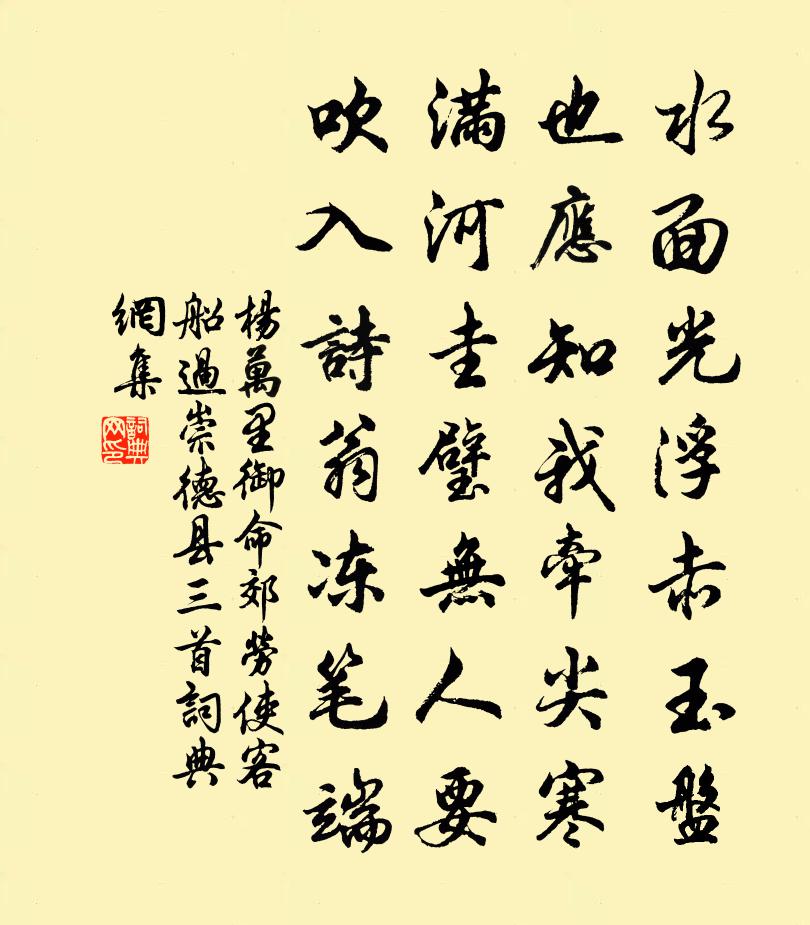 水面光浮赤玉盤
也應知我牽尖寒
滿河圭璧無人要
吹入詩翁冻笔端
楊萬里御命郊勞使客
船過崇德县三首詞典
網集
詞典网印